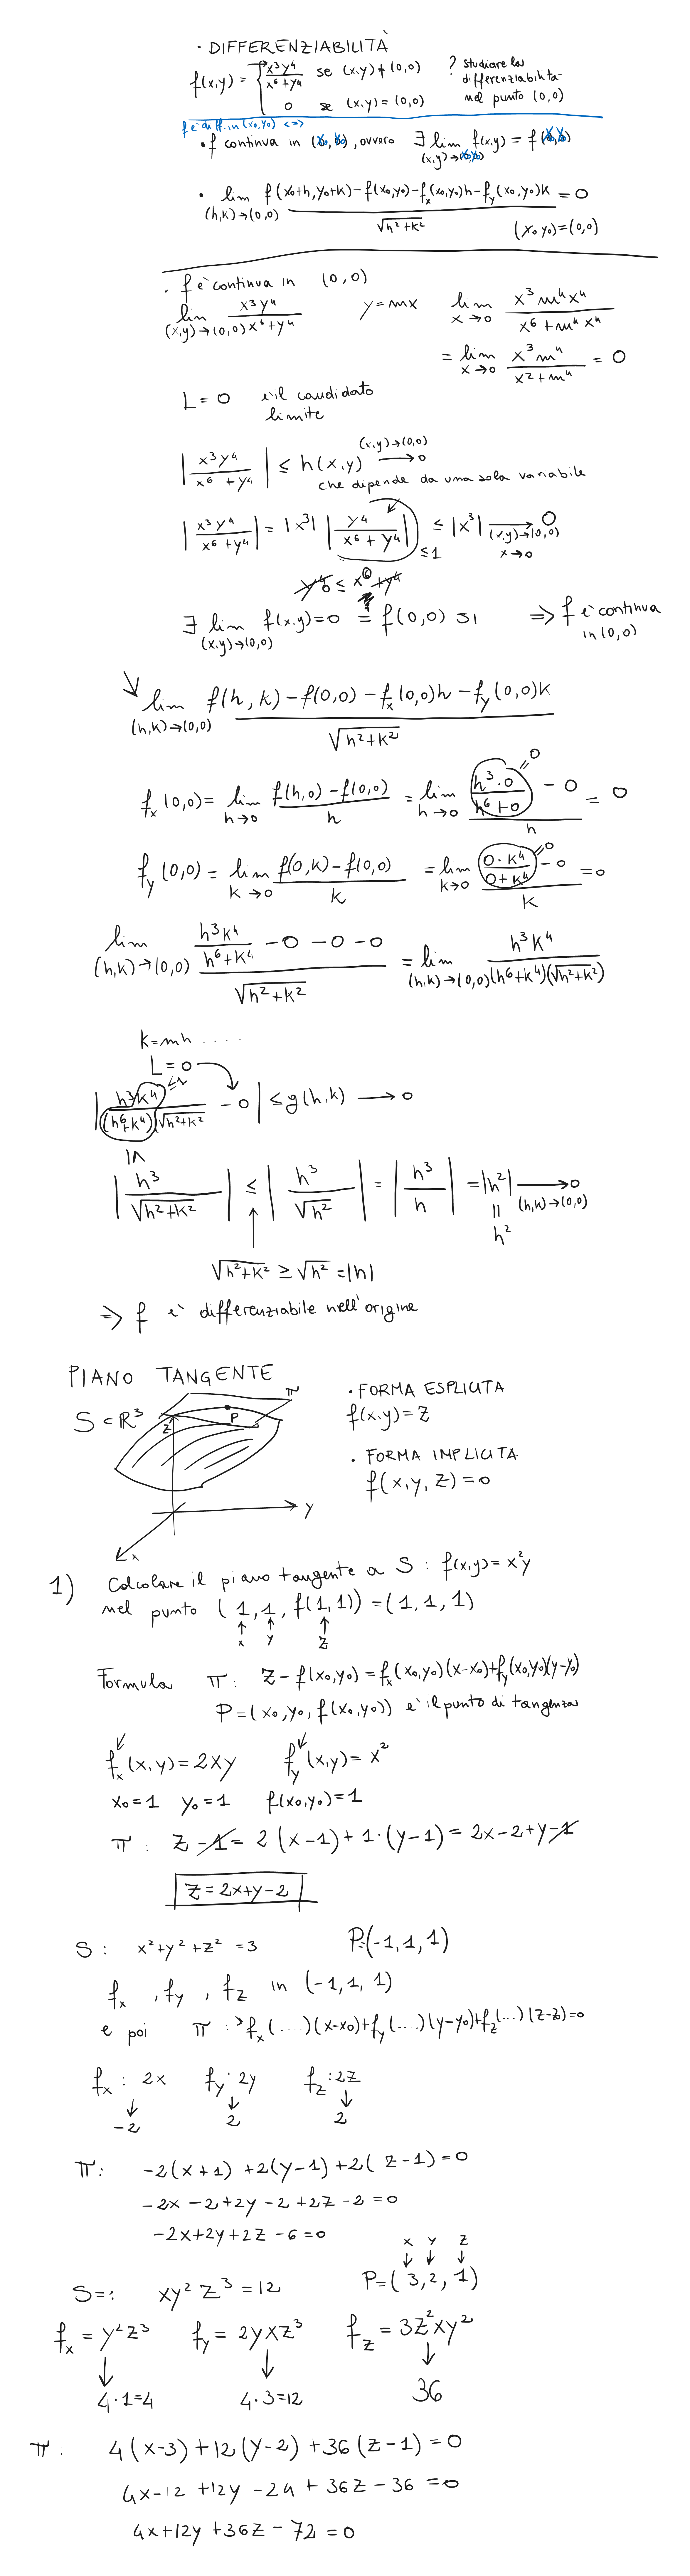 · DIFFERENZIABILITÀ
f(x,y) = { x³y⁴/(x⁶+y⁴) se (x,y)≠(0,0)
0 se (x,y)=(0,0)
? studiare la differenziabilità nel punto (0,0)
f è diff. in (x₀,y₀) <=>
· f continua in (x₀,y₀), ovvero ∃ lim (x,y)→(x₀,y₀) f(x,y) = f(x₀,y₀)
· lim (h,k)→(0,0) [f(x₀+h,y₀+k)-f(x₀,y₀)-fx(x₀,y₀)h-fy(x₀,y₀)k]/√(h²+k²) = 0
(x₀,y₀)=(0,0)
· f è continua in (0,0)
lim (x,y)→(0,0) x³y⁴/(x⁶+y⁴) y=mx lim x→0 x³m⁴x⁴/(x⁶+m⁴x⁴)
= lim x→0 x³m⁴/(x²+m⁴) = 0
L=0 è il candidato
limite
|x³y⁴/(x⁶+y⁴)| ≤ h(x,y) (x,y)→(0,0) → 0
che dipende da una sola variabile
|x³y⁴/(x⁶+y⁴)| = |x³| |y⁴/(x⁶+y⁴)| ≤1 ≤ |x³| → 0 (x,y)→(0,0) x→0
0 ≤ x⁶
∃ lim (x,y)→(0,0) f(x,y)=0 ?= f(0,0) sì => f è continua in (0,0)
lim (h,k)→(0,0) [f(h,k)-f(0,0)-fx(0,0)h-fy(0,0)k]/√(h²+k²)
fx(0,0)= lim h→0 [f(h,0)-f(0,0)]/h = lim h→0 [h³·0/(h⁶+0) - 0]/h = 0
=0
fy(0,0) = lim k→0 [f(0,k)-f(0,0)]/k = lim k→0 [0·k⁴/(0+k⁴) - 0]/k = 0
=0
lim (h,k)→(0,0) [h³k⁴/(h⁶+k⁴) -0-0-0]/√(h²+k²) = lim (h,k)→(0,0) h³k⁴/((h⁶+k⁴)(√(h²+k²)))
k=mh ....
L=0
≤1
|h³k⁴/((h⁶+k⁴)√(h²+k²)) - 0| ≤ g(h,k) → 0
≤
|h³/√(h²+k²)| ≤ |h³/√h²| = |h³/h| = |h²| → 0 (h,k)→(0,0)
= h²
√(h²+k²) ≥ √h² = |h|
=> f è differenziabile nell'origine
PIANO TANGENTE
S⊂ℝ³
π
P
z
y
x
· FORMA ESPLICITA
f(x,y)=z
· FORMA IMPLICITA
f(x,y,z)=0
1) Calcolare il piano tangente a S : f(x,y)=x²y
nel punto (1,1,f(1,1))=(1,1,1)
x y z
Formula π: z-f(x₀,y₀)=fx(x₀,y₀)(x-x₀)+fy(x₀,y₀)(y-y₀)
P=(x₀,y₀,f(x₀,y₀)) è il punto di tangenza
fx(x,y)=2xy fy(x,y)=x²
x₀=1 y₀=1 f(x₀,y₀)=1
π: z-1=2(x-1)+1·(y-1)=2x-2+y-1
z=2x+y-2
S: x²+y²+z²=3 P=(-1,1,1)
fx, fy, fz in (-1,1,1)
e poi π: fx(....)(x-x₀)+fy(....)(y-y₀)+fz(...)(z-z₀)=0
fx: 2x fy: 2y fz: 2z
-2 2 2
π: -2(x+1)+2(y-1)+2(z-1)=0
-2x-2+2y-2+2z-2=0
-2x+2y+2z-6=0
x y z
S=: xy²z³=12 P=(3,2,1)
fx=y²z³ fy=2yxz³ fz=3z²xy²
4·1=4 4·3=12 36
π: 4(x-3)+12(y-2)+36(z-1)=0
4x-12+12y-24+36z-36=0
4x+12y+36z-72=0